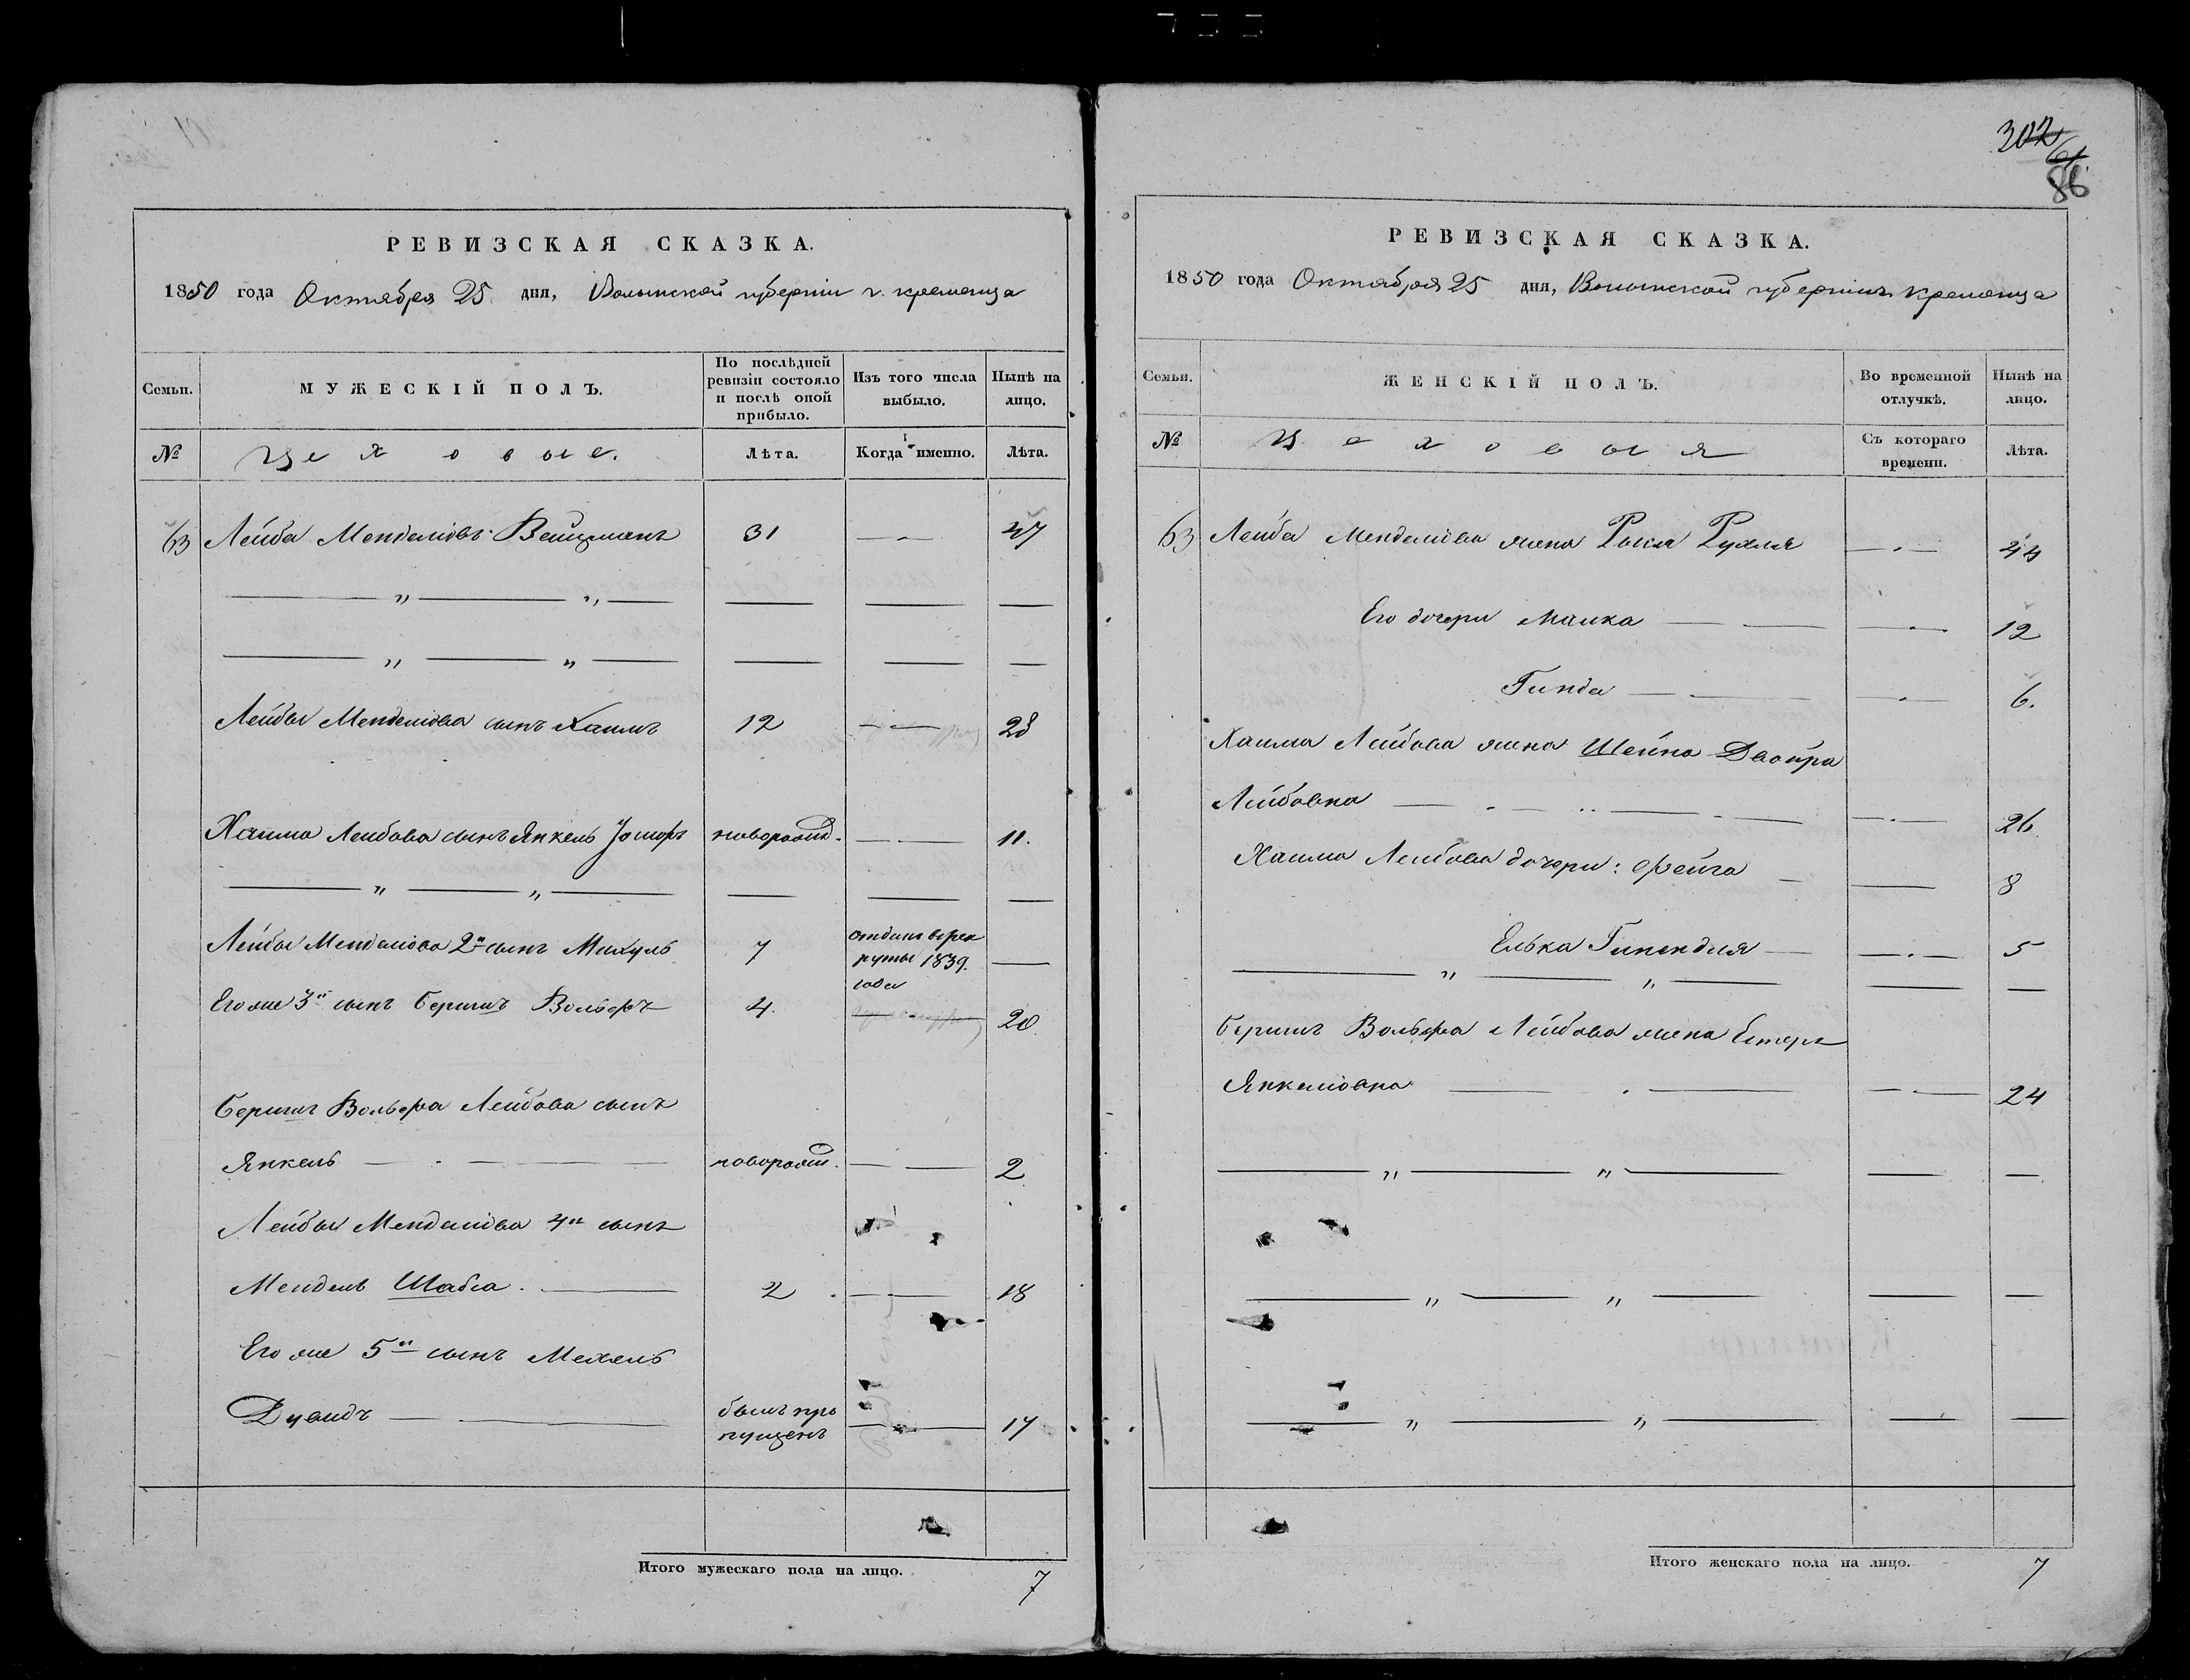 РЕВИЗСКАЯ СКАЗКА.
1850 года Октября 25 дня, Волынской губерніи г. кременца
Семьи.
МУЖЕСКІЙ ПОЛЪ.
По послѣдней ревизіи состояло и послѣ оной прибыло.
Изъ того числа выбыло.
Нынѣ на лицо.
№
Цеховые.
Лѣта.
Когда именно.
Лѣта.
63 Лейба Менделіовъ Вайцманъ 31 47
Лейбы Менделіова сынъ Хаимъ 12 28
Хаима Лейбова сынъ Янкель Іошоръ новорожд. 11.
Лейбы Менделіова 2й сынъ Михуль 7 отданъ врек
руты 1839.
года
Его же 3й сынъ Беришъ Вольфъ 4. 20
Беришъ Вольфа Лейбова сынъ
Янкель новорожд. 2
Лейбы Менделіова 4й сынъ
Мендель Шабса 2 18
Его же 5й сынъ Мехель
Дувидъ былъ про
пущенъ 17
Итого мужескаго пола на лицо. 7
302
61
86
РЕВИЗСКАЯ СКАЗКА.
1850 года Октября 25 дня, Волынской губерніи г. Кременца
Семьи.
ЖЕНСКІЙ ПОЛЪ.
Во временной отлучкѣ.
Нынѣ на лицо.
№
Цеховыя
Съ котораго времени.
Лѣта.
63 Лейба Менделіова жена Рыся Рухля 44
Его дочери Малка 12
Гинда 6.
Хаима Лейбова жена Шейна Двойра
Лейбовна 26
Хаима Лейбова дочери: Фейга 8
Елька Гинендля 5
Беришъ Вольфа Лейбова жена Естеръ
Янкеліовна 24
Итого женскаго пола на лицо. 7